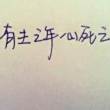 有生之年 心死之